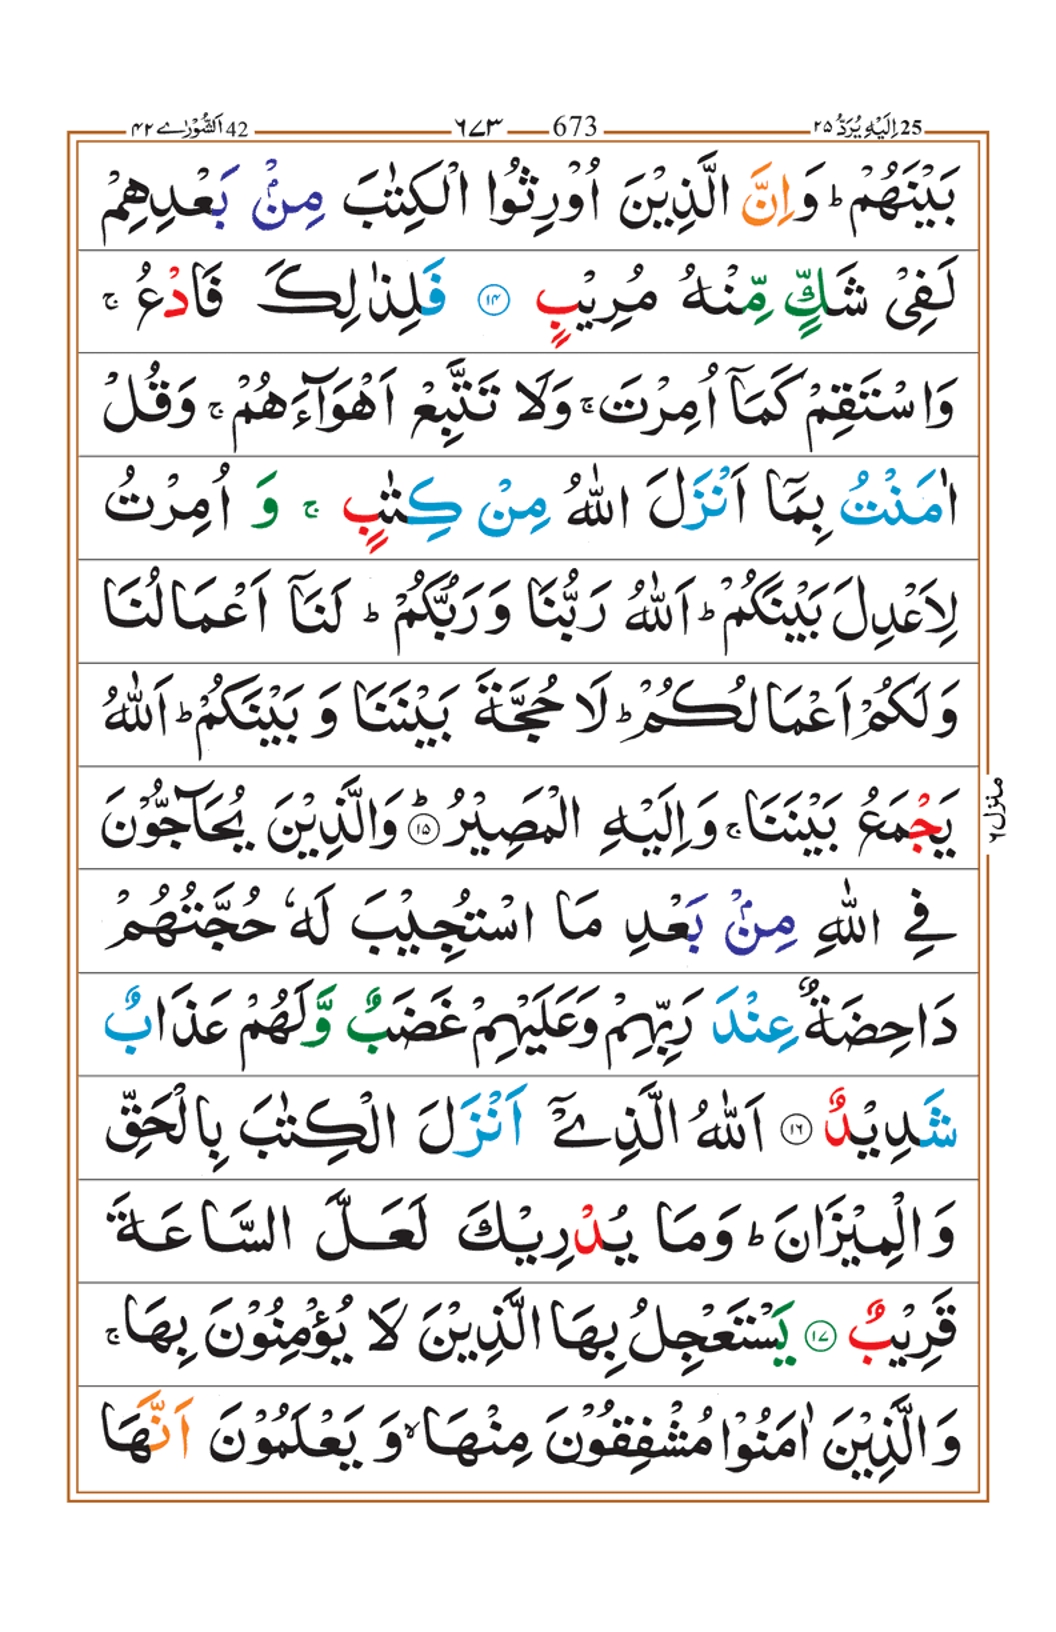 25 اِلَيْهِ يُرَدُّ ٢٥
673 ٦٧٣
42 اَلشُّوْرٰى ٤٢
بَيْنَهُمْ ؕ وَاِنَّ الَّذِيْنَ اُوْرِثُوا الْكِتٰبَ مِنْۢ بَعْدِهِمْ
لَفِىْ شَكٍّ مِّنْهُ مُرِيْبٍ ١٤ فَلِذٰلِكَ فَادْعُ ۚ
وَاسْتَقِمْ كَمَاۤ اُمِرْتَ ۚ وَلَا تَتَّبِعْ اَهْوَآءَهُمْ ۚ وَقُلْ
اٰمَنْتُ بِمَاۤ اَنْزَلَ اللّٰهُ مِنْ كِتٰبٍ ۚ وَ اُمِرْتُ
لِاَعْدِلَ بَيْنَكُمْ ؕ اَللّٰهُ رَبُّنَا وَ رَبُّكُمْ ؕ لَنَاۤ اَعْمَالُنَا
وَلَكُمْ اَعْمَالُكُمْ ؕ لَا حُجَّةَ بَيْنَنَا وَ بَيْنَكُمْ ؕ اَللّٰهُ
يَجْمَعُ بَيْنَنَا ۚ وَاِلَيْهِ الْمَصِيْرُ ؕ ١٥ وَالَّذِيْنَ يُحَآجُّوْنَ
فِى اللّٰهِ مِنْۢ بَعْدِ مَا اسْتُجِيْبَ لَهٗ حُجَّتُهُمْ
دَاحِضَةٌ عِنْدَ رَبِّهِمْ وَعَلَيْهِمْ غَضَبٌ وَّلَهُمْ عَذَابٌ
شَدِيْدٌ ١٦ اَللّٰهُ الَّذِىْۤ اَنْزَلَ الْكِتٰبَ بِالْحَقِّ
وَالْمِيْزَانَ ؕ وَمَا يُدْرِيْكَ لَعَلَّ السَّاعَةَ
قَرِيْبٌ ١٧ يَسْتَعْجِلُ بِهَا الَّذِيْنَ لَا يُؤْمِنُوْنَ بِهَا ۚ
وَالَّذِيْنَ اٰمَنُوْا مُشْفِقُوْنَ مِنْهَا ۙ وَ يَعْلَمُوْنَ اَنَّهَا
منزل ٦